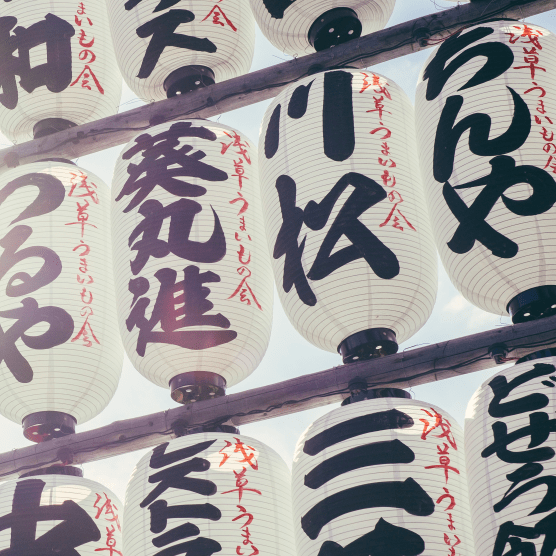 和
浅草うまいもの会
天
会
つるや
浅草うまいもの会
葵丸進
浅草うまいもの会
川松
浅草うまいもの会
ちんや
浅草うまいもの会
浅草
ストラ
浅草うま
三
浅草うまい
どぜう飯